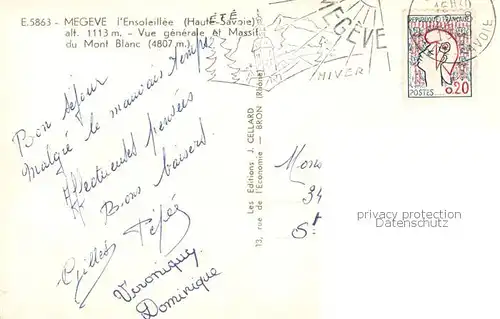 E.5863 - MEGEVE l'Ensoleillée (Haute-Savoie)
alt. 1113 m. - Vue générale et Massif
du Mont Blanc (4807 m.)
ÉTÉ
MEGÈVE
HIVER
15H30
SAVOIE
REPUBLIQUE FRANÇAISE
0,20
POSTES
Bon séjour
malgré le mauvais temps
Affectueuses pensées
Bons baisers.
Gilles Pépée
Veronique
Dominique
Les Editions J. CELLARD
13, rue de l'Economie - BRON (Rhône)
Mons
34
privacy protection
AnkAnkAnk.com